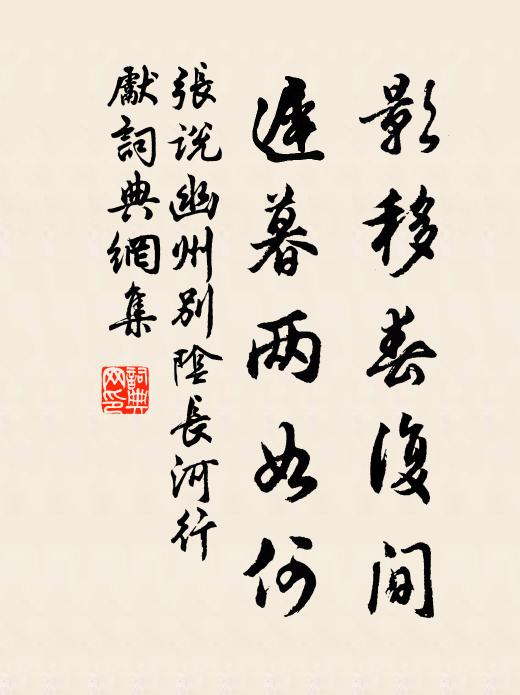 影移春復間
遲暮两如何
張說幽州別陰長河行
獻詞典網集
詞典网印